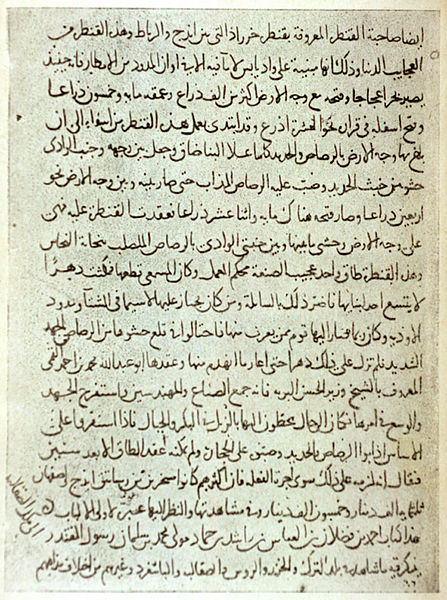 ايضا صاحبة القنطرة المعروفة بقنطرة خرزاذ التى بين ايذج والرباط وهذه القنطرة من
عجايب الدنيا وذلك انها مبنية على واد يابس لا ما فيه الا فى اوان المدود من الامطار فانه حينئذ
يصير بحرا عجاجا وفتحه مع وجه الارض اكثر من الف ذراع وعمقه مايه وخمسون ذراعا
وفتح اسفله فى قراره نحو العشرة اذرع وقد ابتدى بعمل هذه القنطرة من اسفلها الى ان
بلغ بها وجه الارض بالرصاص والحديد كلما علا البنا ضاق وجعل بين وجهه وجنب الوادى
حشو من خبث الحديد وصب عليه الرصاص المذاب حتى صار بينه وبين وجه الارض نحو
اربعين ذراعا وصار فتحه هناك مايه واثنا عشر ذراعا فعقدت القنطرة عليه فهى
على وجه الارض وحشى ما بينها وبين جنبتى الوادى بالرصاص المصلب بنحاتة النحاس
وهذه القنطرة طاق واحد عجيب الصنعة محكم العمل وكان المسمعى قطعها فمكثت دهرا
لا يتسع احد لبنايها فاضر ذلك بالسابلة ومن كان يجتاز عليها لا سيما فى الشتا ومدود
الاوديه وكان ربما صار اليها قوم ممن يقرب منها فاحتالوا فى قلع حشوها من الرصاص بالجهد
الشديد فلم تزل على ذلك دهرا حتى اعاد ما انهدم منها وعقدها ابو عبدالله محمد بن احمد القمى
المعروف بالشيخ وزير الحسن بن بويه فانه جمع الصناع والمهندسين واستفرغ الجهد
والوسع فى امرها فكان الرجال يحطون اليها بالزبل فى البكر والحبال فاذا استقروا على
الاساس اذابوا الرصاص والحديد وصبوه على الحجارة ولم يمكنه عقد الطاق الا بعد سنتين
فيقال انه لزمه على ذلك سوى اجرة الفعلة فان اكثرهم كانوا مسخرين من رساتيق ايذج واصفهان
ثلثمايه الف دينار وخمسون الف دينار وفى مشاهدتها والنظر اليها عبرة لاولى الالباب
هذا كتاب احمد بن فضلان بن العباس بن راشد بن حماد مولى محمد بن سليمان رسول المقتدر
الى ملك الصقالبة
يذكر فيه ما شاهد فى بلد الترك والخزر والروس والصقالبة والباشغرد وغيرهم من اختلاف مذاهبهم